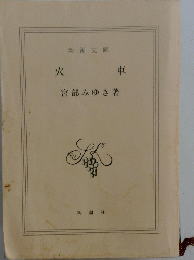 新潮文庫
火車
宮部みゆき著
新潮社